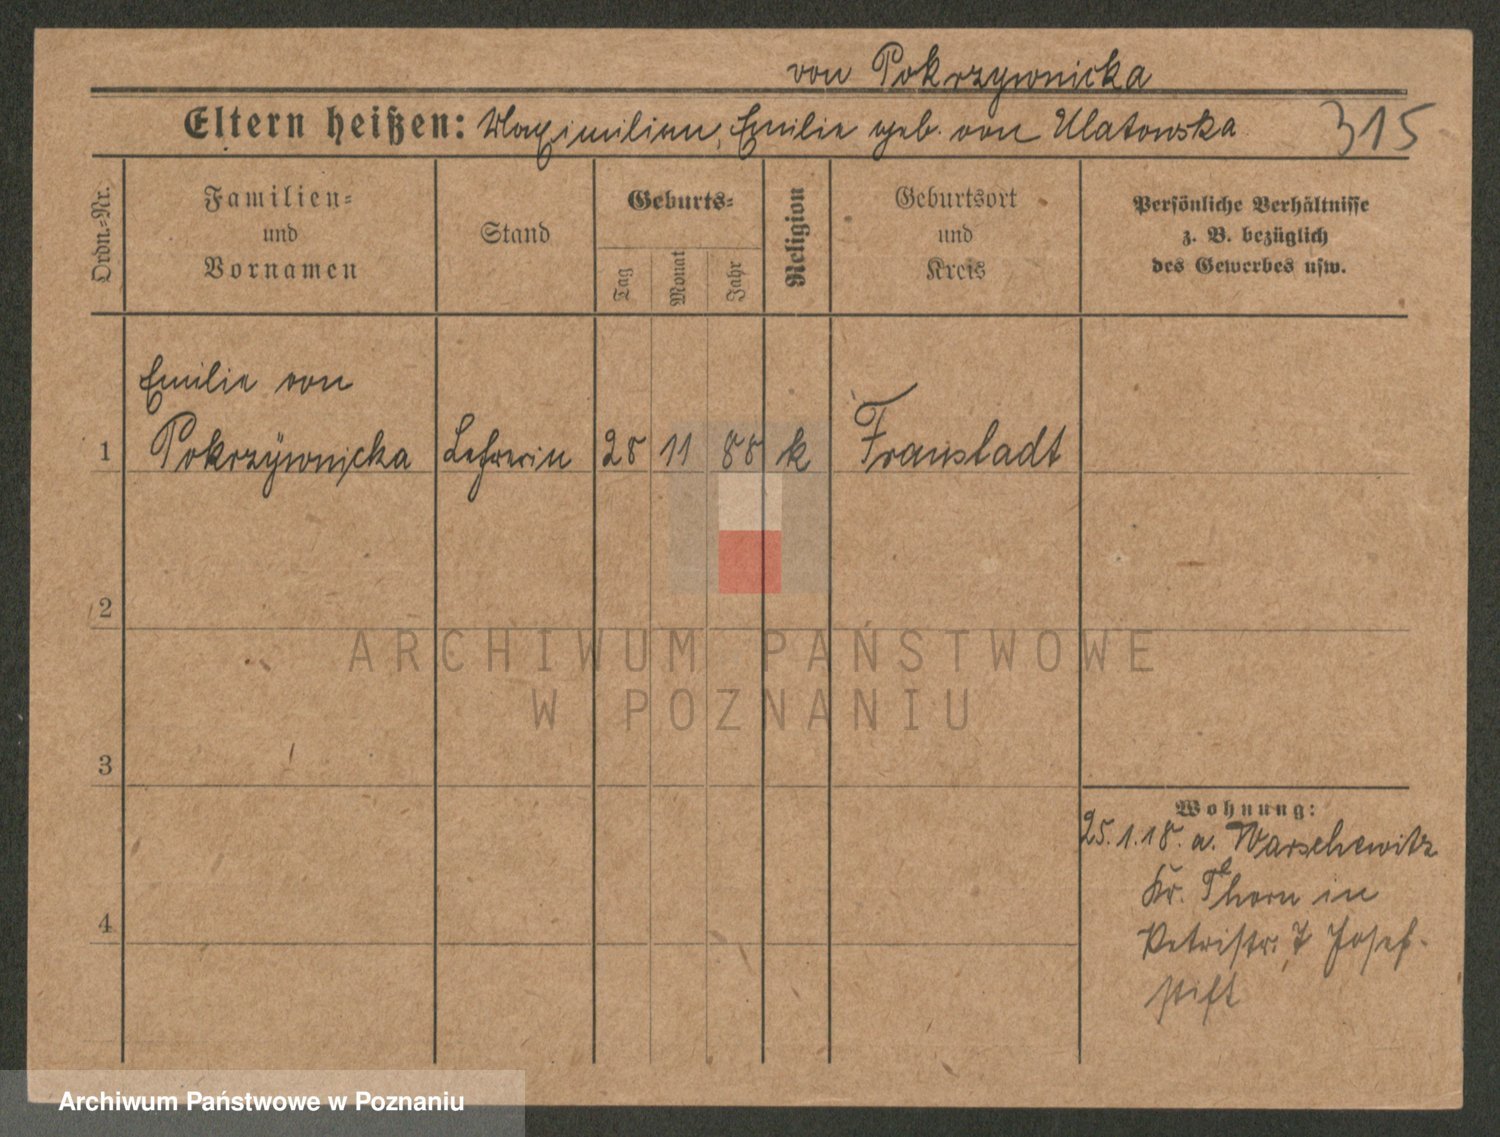 von Pokrzywnicka
Eltern heißen: Maximilian, Emilie geb. von Ulatowska 315
Ordn.-Nr.
Familien-
und
Vornamen
Stand
Geburts-
Tag
Monat
Jahr
Religion
Geburtsort
und
Kreis
Persönliche Verhältnisse
z. B. bezüglich
des Gewerbes usw.
Emilie von
1 Pokrzywnicka Lehrerin 28 11 88 k Fraustadt
2
ARCHIWUM PAŃSTWOWE
W POZNANIU
3
Wohnung:
25.1.18. a. Warschewitz
Kr. Thorn in
4
Petristr. 7 Josef-
stift
Archiwum Państwowe w Poznaniu